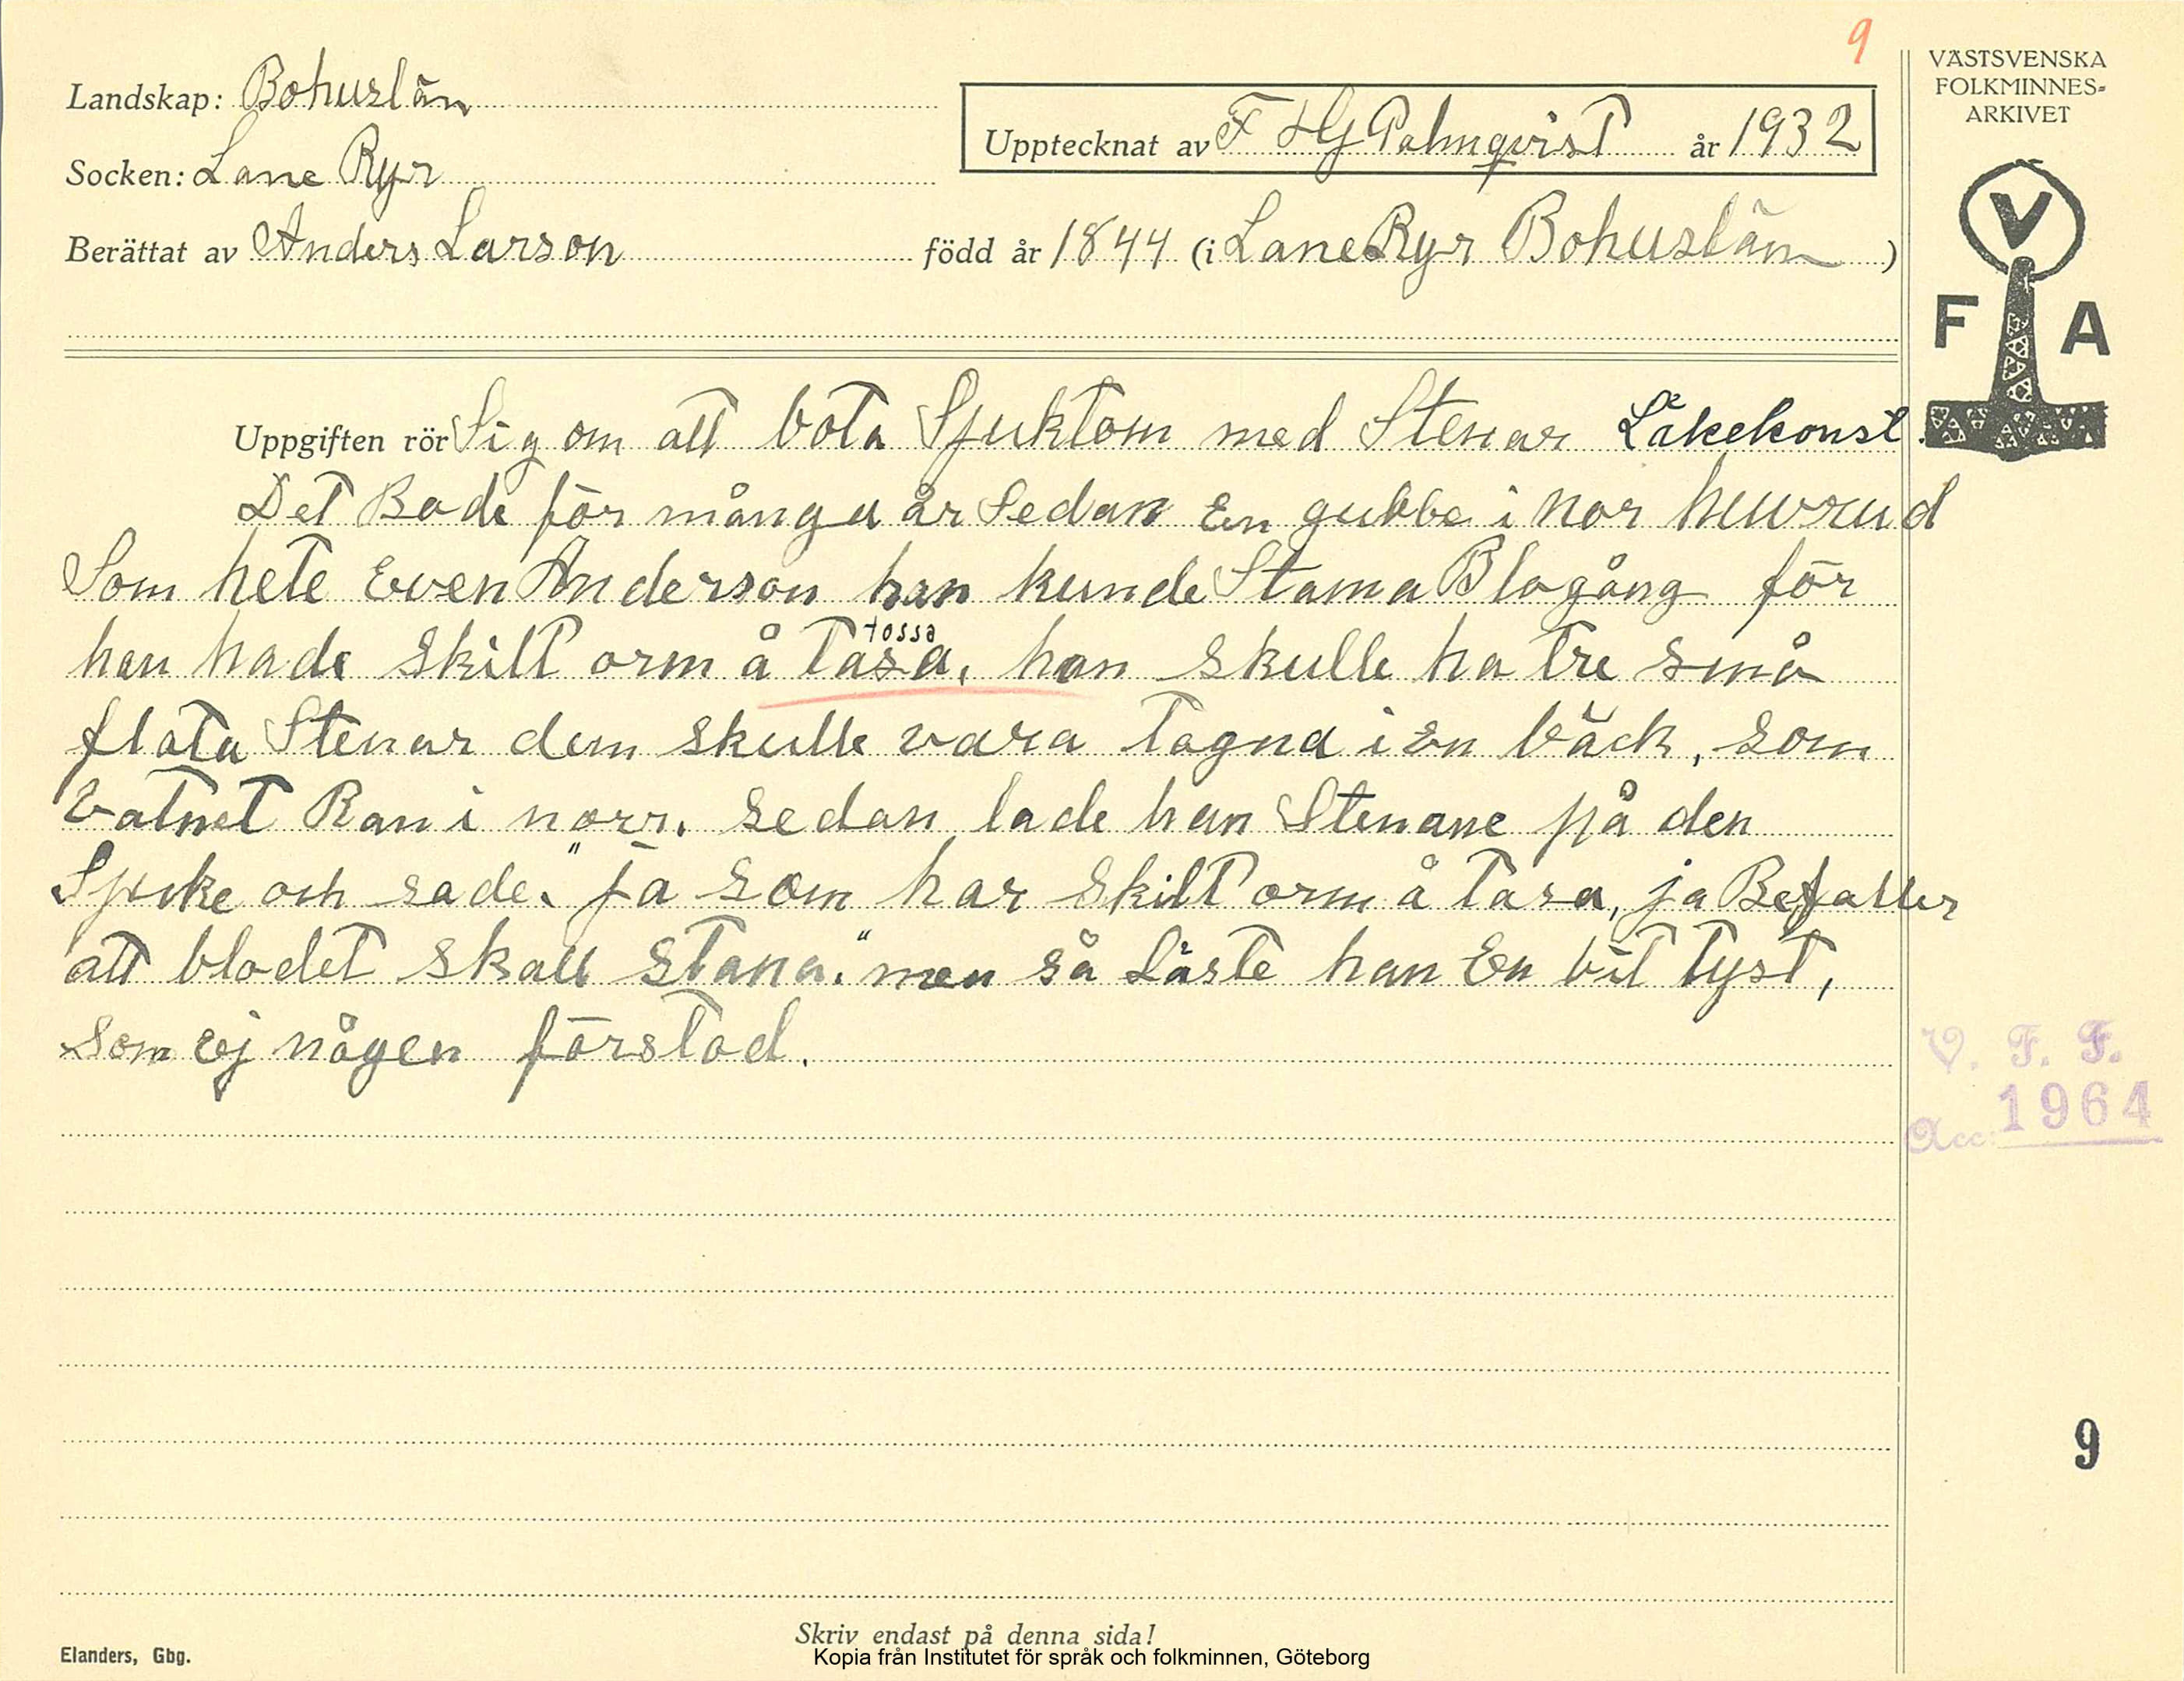 9
VÄSTSVENSKA
FOLKMINNES-
ARKIVET
Landskap: Bohuslän
Upptecknat av F HG Palmqvist år 1932
Socken: Lane Ryr
Berättat av Anders Larson född år 1844 (i Lane Ryr Bohuslän)
V
F A
Uppgiften rör Sig om att bota Sjukdom med Stenar Läkekonst.
Det Bode för många år Sedan En gubbe i Nor
Som hete Even Anderson han kunde Stama Blogång för
tossa
han hade Skilt orm å Tasa. han skulle ha tre små
flata Stenar dem skulle vara Tagna i En bäck, som
Vatnet Ran i norr. sedan lade han Stenane på den
Sjuke och sade. "ja som har Skilt orm å Tasa, ja Befaller
att blodet skall Stana." men så Läste han En bit Tyst,
som Ej någen förstod.
V. F. F.
Acc: 1964
9
Skriv endast på denna sida!
Elanders, Gbg.
Kopia från Institutet för språk och folkminnen, Göteborg